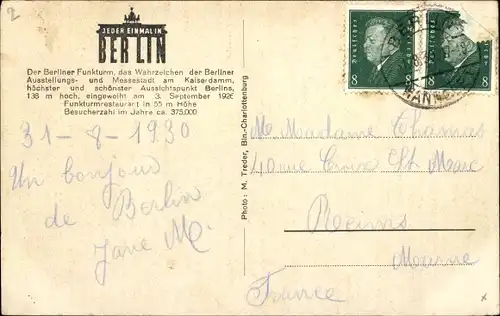 2
JEDER EINMAL IN
BERLIN
Der Berliner Funkturm, das Wahrzeichen der Berliner
Ausstellungs- und Messestadt am Kaiserdamm,
höchster und schönster Aussichtspunkt Berlins,
138 m hoch, eingeweiht am 3. September 1926
Funkturmrestaurant in 55 m Höhe
Besucherzahl im Jahre ca. 375,000
31-8-1930
Un bonjour
de Berlin
Jane M.
Photo: M. Treder, Bln.-Charlottenburg
Deutsches Reich
8 8
M. Madame Thomas
40 rue Croix St Marc
Reims
Marne
France
x